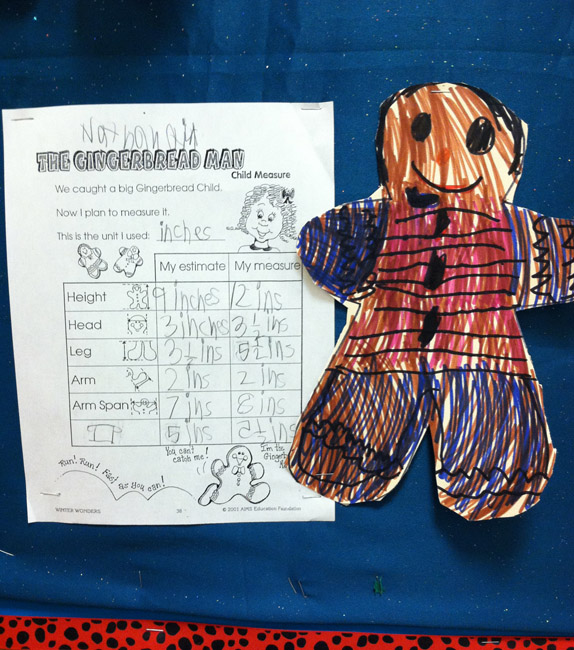 Nathanail
THE GINGERBREAD MAN
Child Measure
We caught a big Gingerbread Child.
Now I plan to measure it.
This is the unit I used: inches
My estimate My measure
Height 9 inches 12 ins
Head 3 inches 3 1/2 ins
Leg 3 1/2 ins 5 1/2 ins
Arm 2 ins 2 ins
Arm Span 7 ins 8 ins
5 ins 5 1/2 ins
You can't
catch me!
I'm the
Run! Run! Fast as you can!
WINTER WONDERS 38 © 2003 AIMS Education Foundation